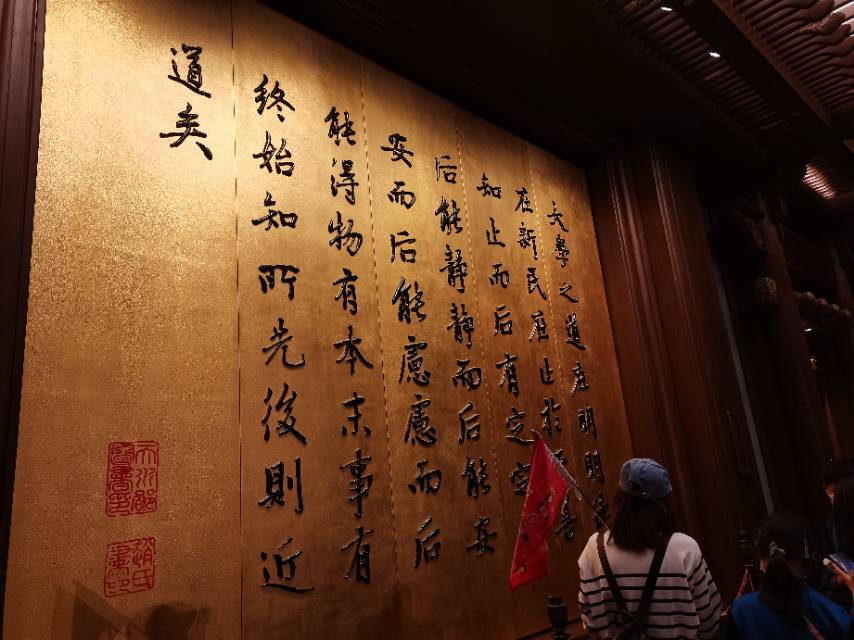 大學之道在明明德
在新民在止於至善
知止而后有定定
后能靜靜而后能安
安而后能慮慮而后
能得物有本末事有
終始知所先後則近
道矣
天水郡
圖書印
趙氏
書印